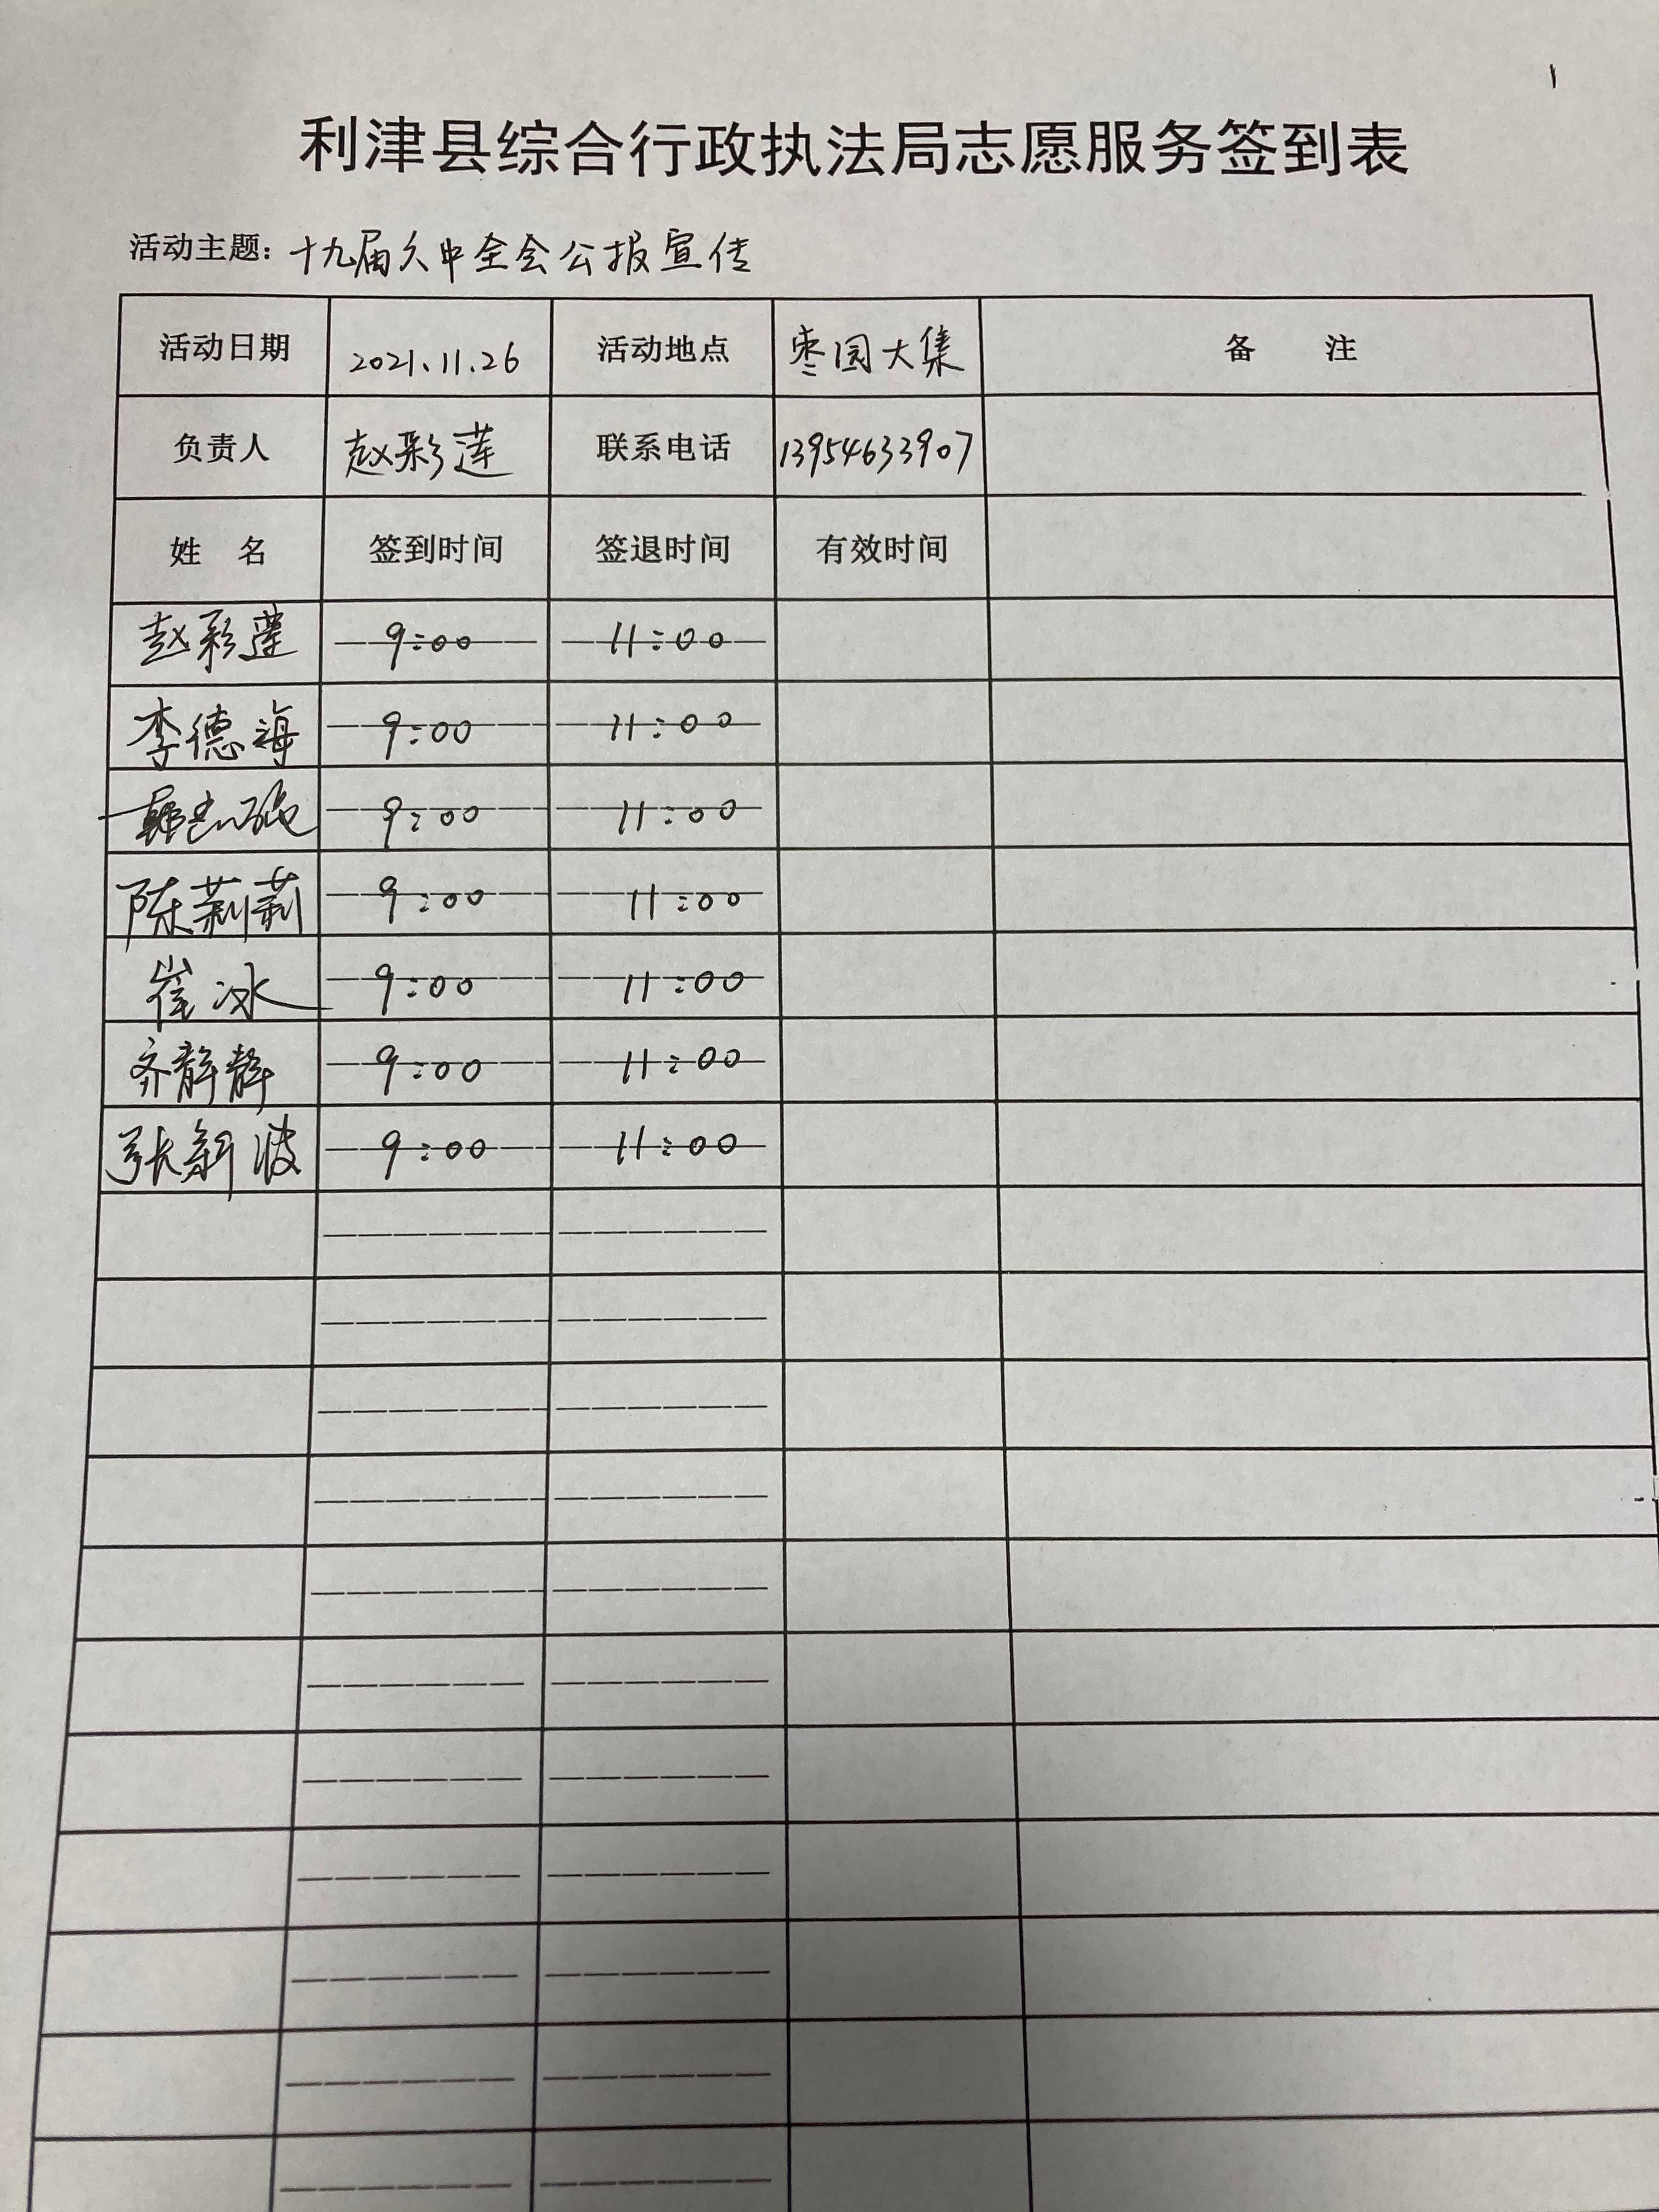 1
利津县综合行政执法局志愿服务签到表
活动主题：十九届六中全会公报宣传
活动日期 2021.11.26 活动地点 枣园大集 备 注
负责人 赵彩莲 联系电话 13954633907
姓 名 签到时间 签退时间 有效时间
赵彩莲 9:00 11:00
李德海 9:00 11:00
韩 9:00 11:00
陈莉莉 9:00 11:00
崔冰 9:00 11:00
齐静静 9:00 11:00
张新波 9:00 11:00